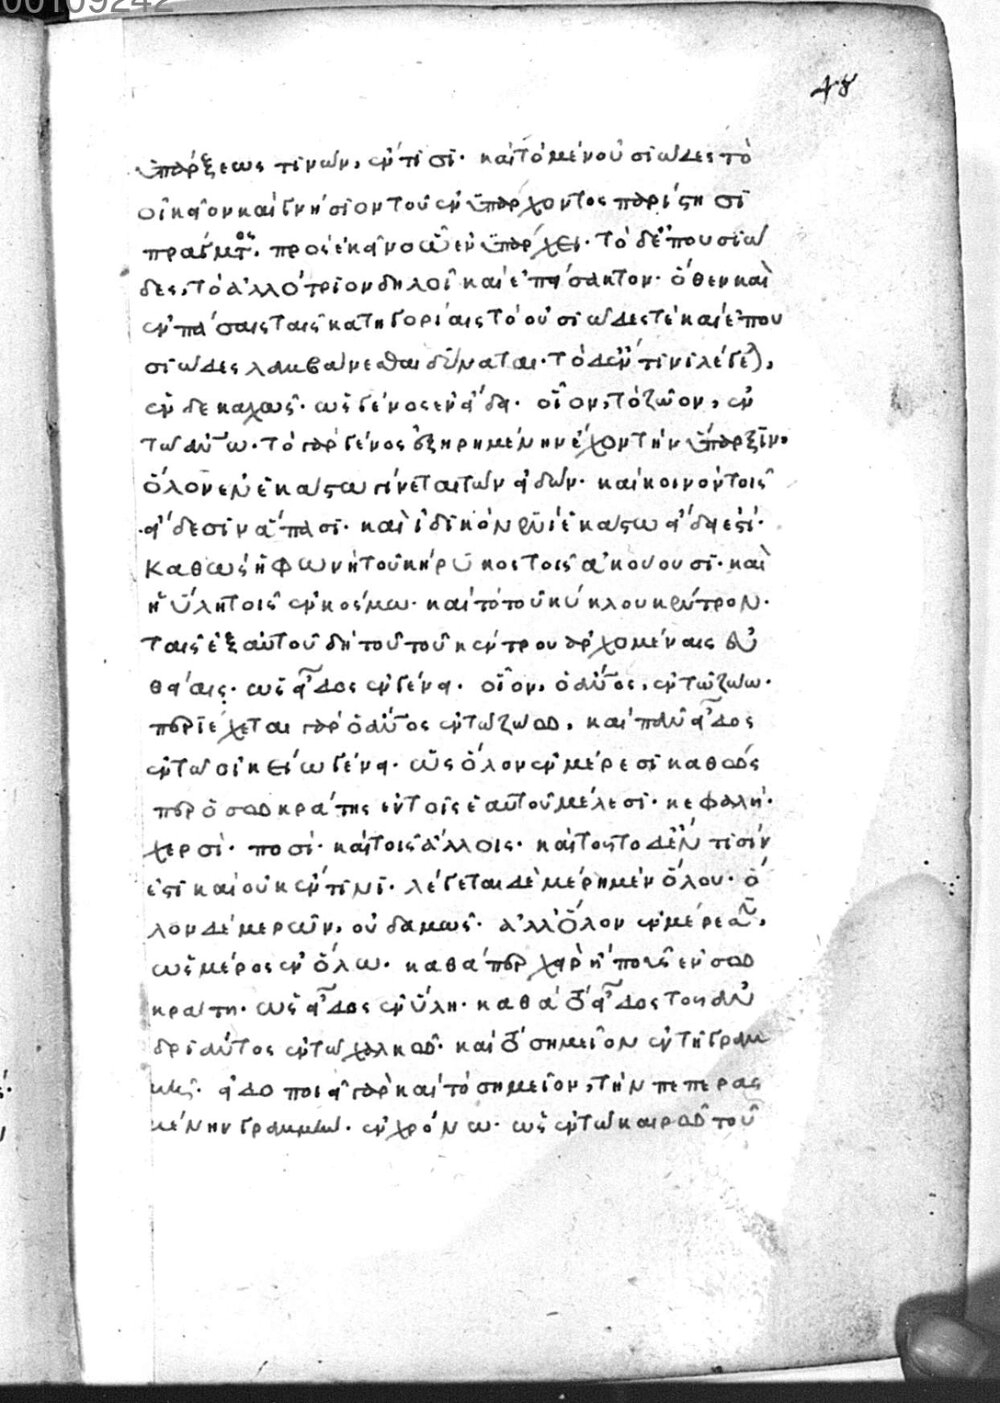 00109242
48
ὑπάρξεως τινῶν, ἐν τισί· καὶ τὸ μὲν οὐσιῶδες τὸ
οἰκεῖον καὶ γνήσιον τοῦ ἐνυπάρχοντος παρίστησι
πράγματος, πρὸς ἐκεῖνο ᾧ ἐνυπάρχει· τὸ δὲ ἐπουσιῶ
δες, τὸ ἀλλότριον δηλοῖ καὶ ἐπείσακτον· ὅθεν καὶ
ἐν πάσαις ταῖς κατηγορίαις τὸ οὐσιῶδες τὲ καὶ ἐπου
σιῶδες λαμβάνεσθαι δύναται· τὸ δὲ ἔν τινι λέγεται,
ἕνδεκαχῶς· ὡς γένος ἐν εἴδει· οἷον, τὸ ζῶον, ἐν
τῶ ἀνθρώπω· τὸ γὰρ γένος ἐξηρημένην ἔχον τὴν ὕπαρξιν,
ὅλον ἐν ἑκάστω γίνεται τῶν εἰδῶν· καὶ κοινὸν τοῖς
εἴδεσιν ἅπασι· καὶ ἰδικὸν ἐν ἑκάστω εἴδει ἐστί·
καθὼς ἡ φωνὴ τοῦ κήρυκος τοῖς ἀκούουσι· καὶ
ἡ ὕλη τοῖς ἐν κόσμω· καὶ τὸ τοῦ κύκλου κέντρον·
ταῖς ἐξ αὐτοῦ δὴ τούτου τοῦ κέντρου ἀρχομέναις εὐ
θείαις· ὡς εἶδος ἐν γένει· οἷον, ὁ ἄνθρωπος, ἐν τῶ ζώω·
περιέχεται γὰρ ὁ ἄνθρωπος ἐν τῶ ζώω, καὶ πᾶν εἶδος
ἐν τῶ οἰκείω γένει· ὡς ὅλον ἐν μέρεσι καθώς
περ ὁ σωκράτης ἐν τοῖς ἑαυτοῦ μέλεσι· κεφαλῇ·
χερσί· ποσί· καὶ τοῖς ἄλλοις· καὶ τοῦτο δὲ ἔν τισίν
ἐστι καὶ οὐκ ἐν τινί· λέγεται δὲ μέρη μὲν ὅλου· ὅ
λον δὲ μερῶν, οὐδαμῶς· ἀλλ' ὅλον ἐν μέρεσιν,
ὡς μέρος ἐν ὅλω· καθάπερ χεὶρ ἢ ποῦς ἐν σω
κράτη· ὡς εἶδος ἐν ὕλη· καθὰ τὸ εἶδος τοῦ ἀν
δριάντος ἐν τῶ χαλκῶ· καὶ τὸ σημεῖον ἐν τῇ γραμ
μῇ· εἰδοποιεῖ γὰρ καὶ τὸ σημεῖον, τὴν πεπερασ
μένην γραμμήν· ἐν χρόνω· ὡς ἐν τῶ καιρῶ τοῦ